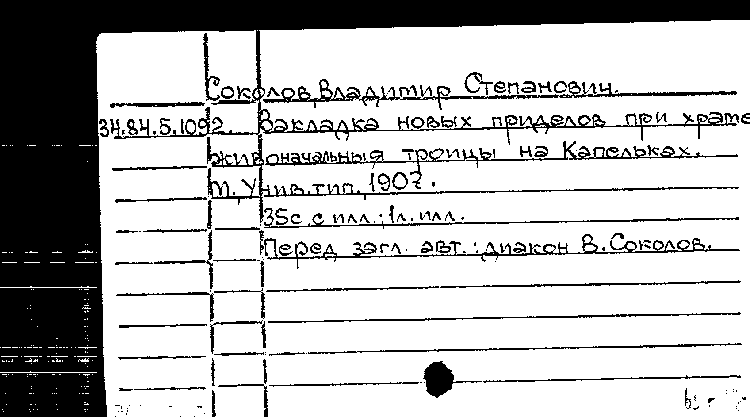 Соколов, Владимир Степанович.
34.84.5.1092. Закладка новых приделов при храме
живоначальныя троицы на Капельках.
М., Унив. тип., 1907.
35с. с илл.; 1л. илл.
Перед загл. авт.: диакон В. Соколов.